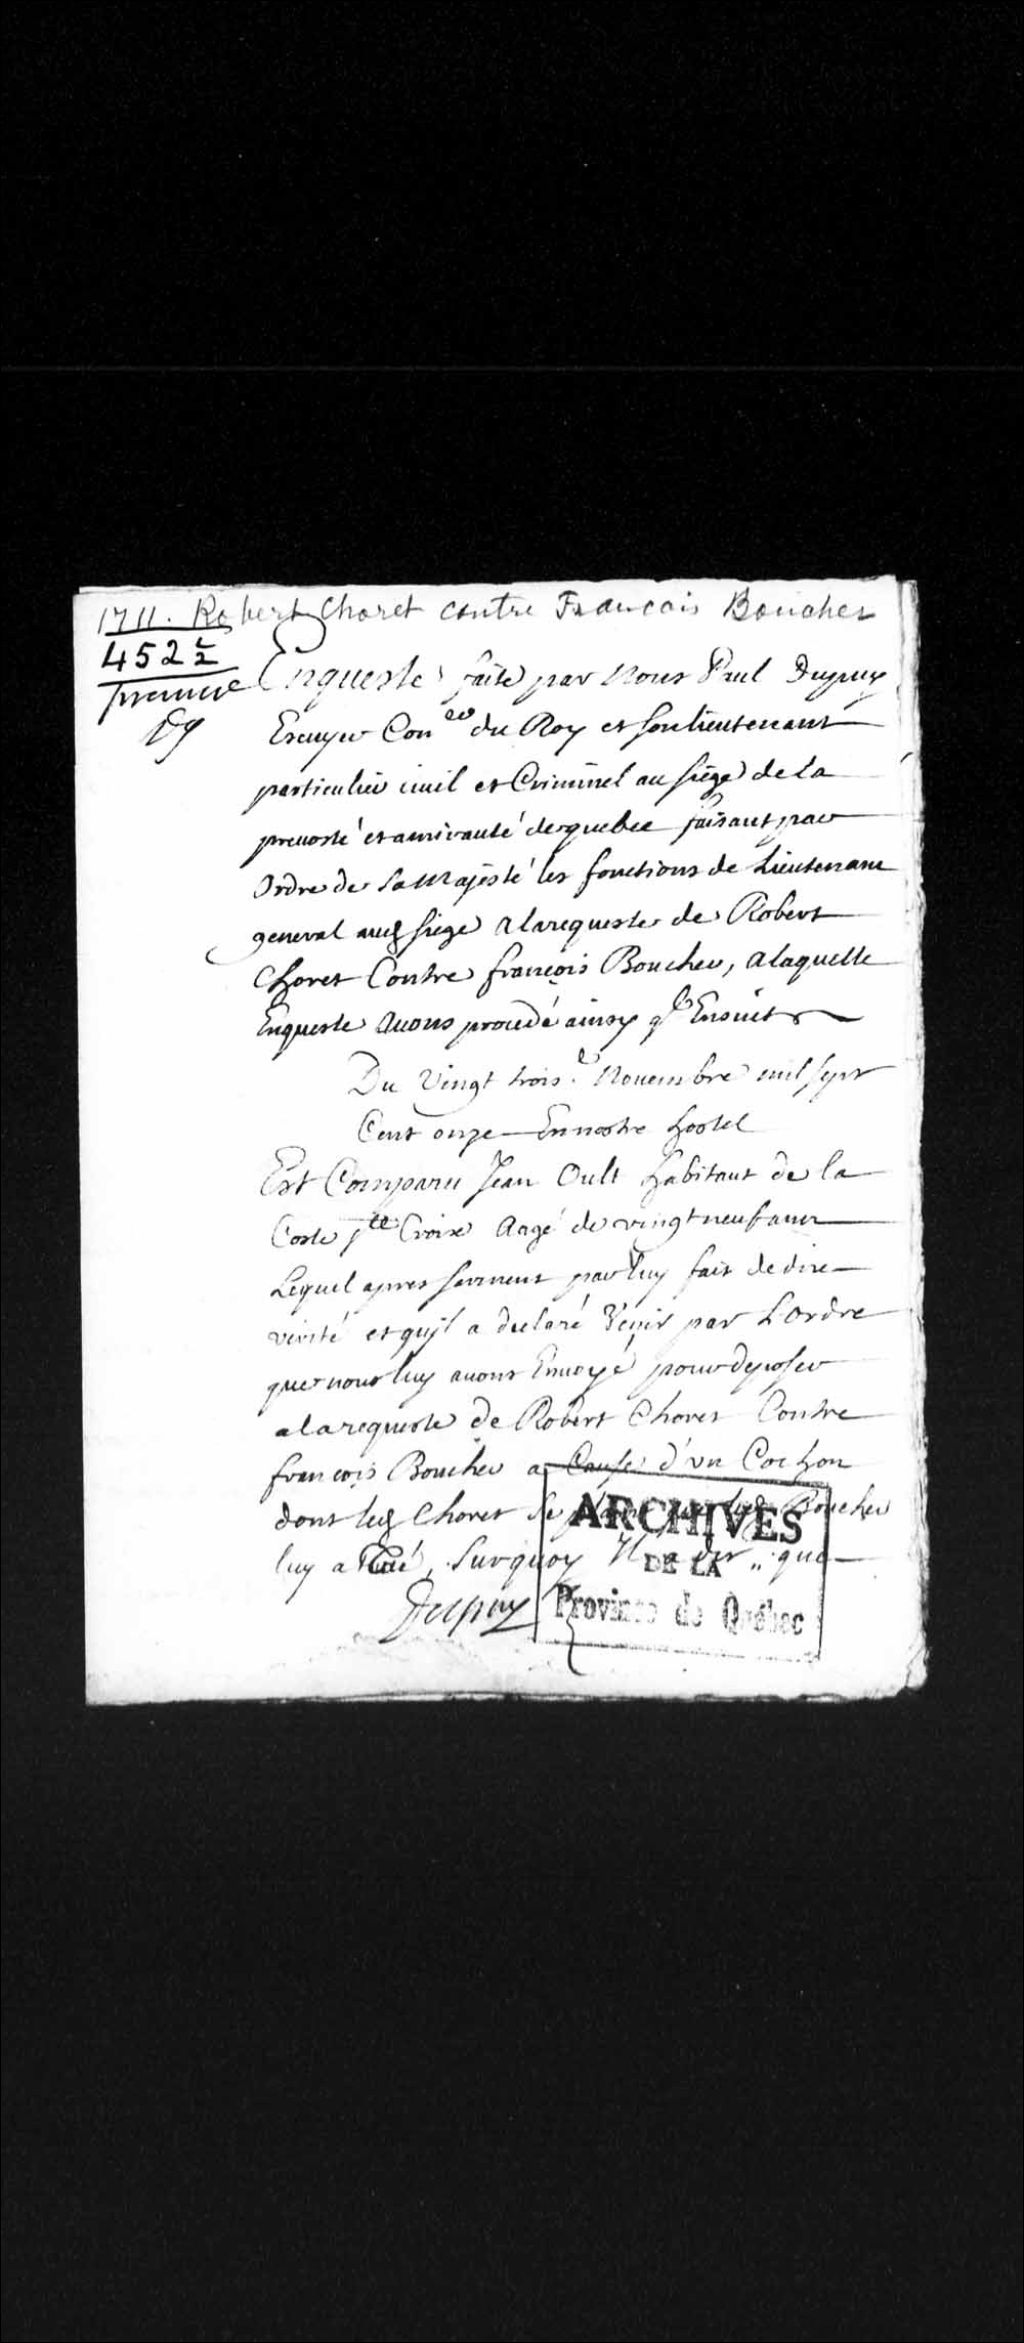 1711. Robert Choret contre Francois Boucher
452½
premiere
pg
Enqueste faite par Nous Paul Dupuy
Escuyer Con.er du Roy et son lieutenant
particulier ciuil et Criminel au siege de la
preuosté et amirauté de quebec faisant par
Ordre de Sa Majesté les fonctions de Lieutenant
general aud siege a la requeste de Robert
Choret Contre françois Boucher, a laquelle
Enqueste Auons procedé ainsy q Ensuit
Du Vingt trois.e Nouembre mil sept
Cent onze En nostre hostel
Est Comparu Jean Oult habitant de la
Coste Ste Croix Aagé de vingt neuf ans
Lequel apres serment par luy fait de dire
verité et qu'jl a declaré Venir par L'Ordre
que nous luy auons Enuoyé pour deposer
a la requeste de Robert Choret Contre
françois Boucher a Cause d'vn Cochon
dont led Choret se led Boucher
luy a Tué, Surquoy Il a dit que
Dupuy
ARCHIVES
DE LA
Province de Québec